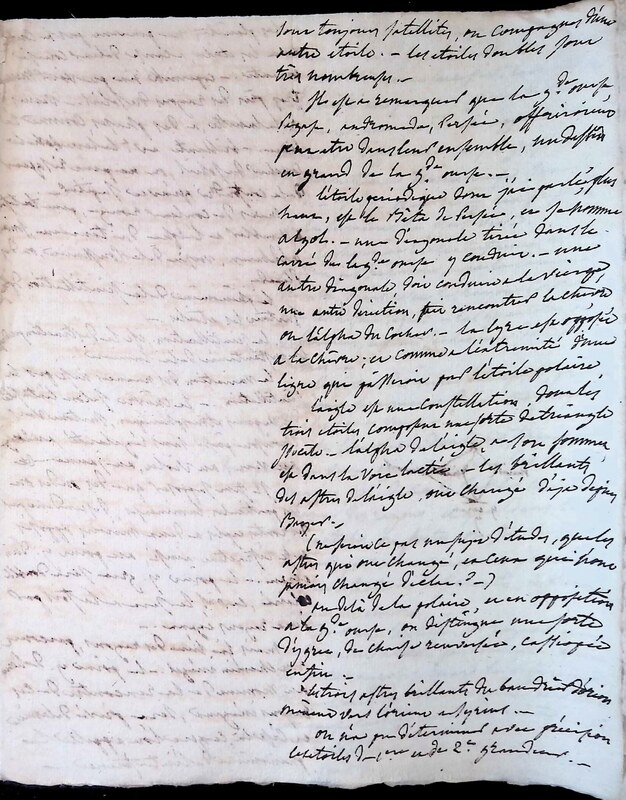 sont toujours satellites, ou compagnes d'une
autre etoile. - les etoiles doubles sont
très nombreuses. -
Il est a remarquer que la gde ourse,
Pegase, andromede, Persée, offriroient
peut etre dans leur ensemble, un dessin
en grand de la gde ourse. -
l'étoile périodique dont j'ai parlé plus
haut, est le Bêta de Persée, et se nomme
algol. - une diagonale tirée dans le
carré de la gde ourse y conduit. - une
autre diagonale doit conduire a la Vierge,
une autre direction, fait rencontrer la chèvre
ou l'alpha du Cocher. - la lyre est opposée
a la chèvre, et comme a l'extremité d'une
ligne qui passeroit par l'étoile polaire,
l'aigle est une Constellation, dont les
trois etoiles composent une sorte de triangle
isocele - l'alpha de l'aigle, a son sommet
est dans la Voie lactée - les brillants
des astres de l'aigle, ont changé déja depuis
Bayer. -
(ne seroit ce pas un sujet d'études, que les
astres qui ont changé, et ceux qui n'ont
jamais changé d'éclat ? -)
au delà de la polaire, et en opposition
a la gde ourse, on distingue une sorte
d'ygrec, de chaise renversée, cassiopée
enfin. -
les trois astres brillants du baudrier d'orion
menent vers l'orient a syrius. -
on n'a pu déterminer avec précision
les etoiles de 1ere et de 2e grandeur. -